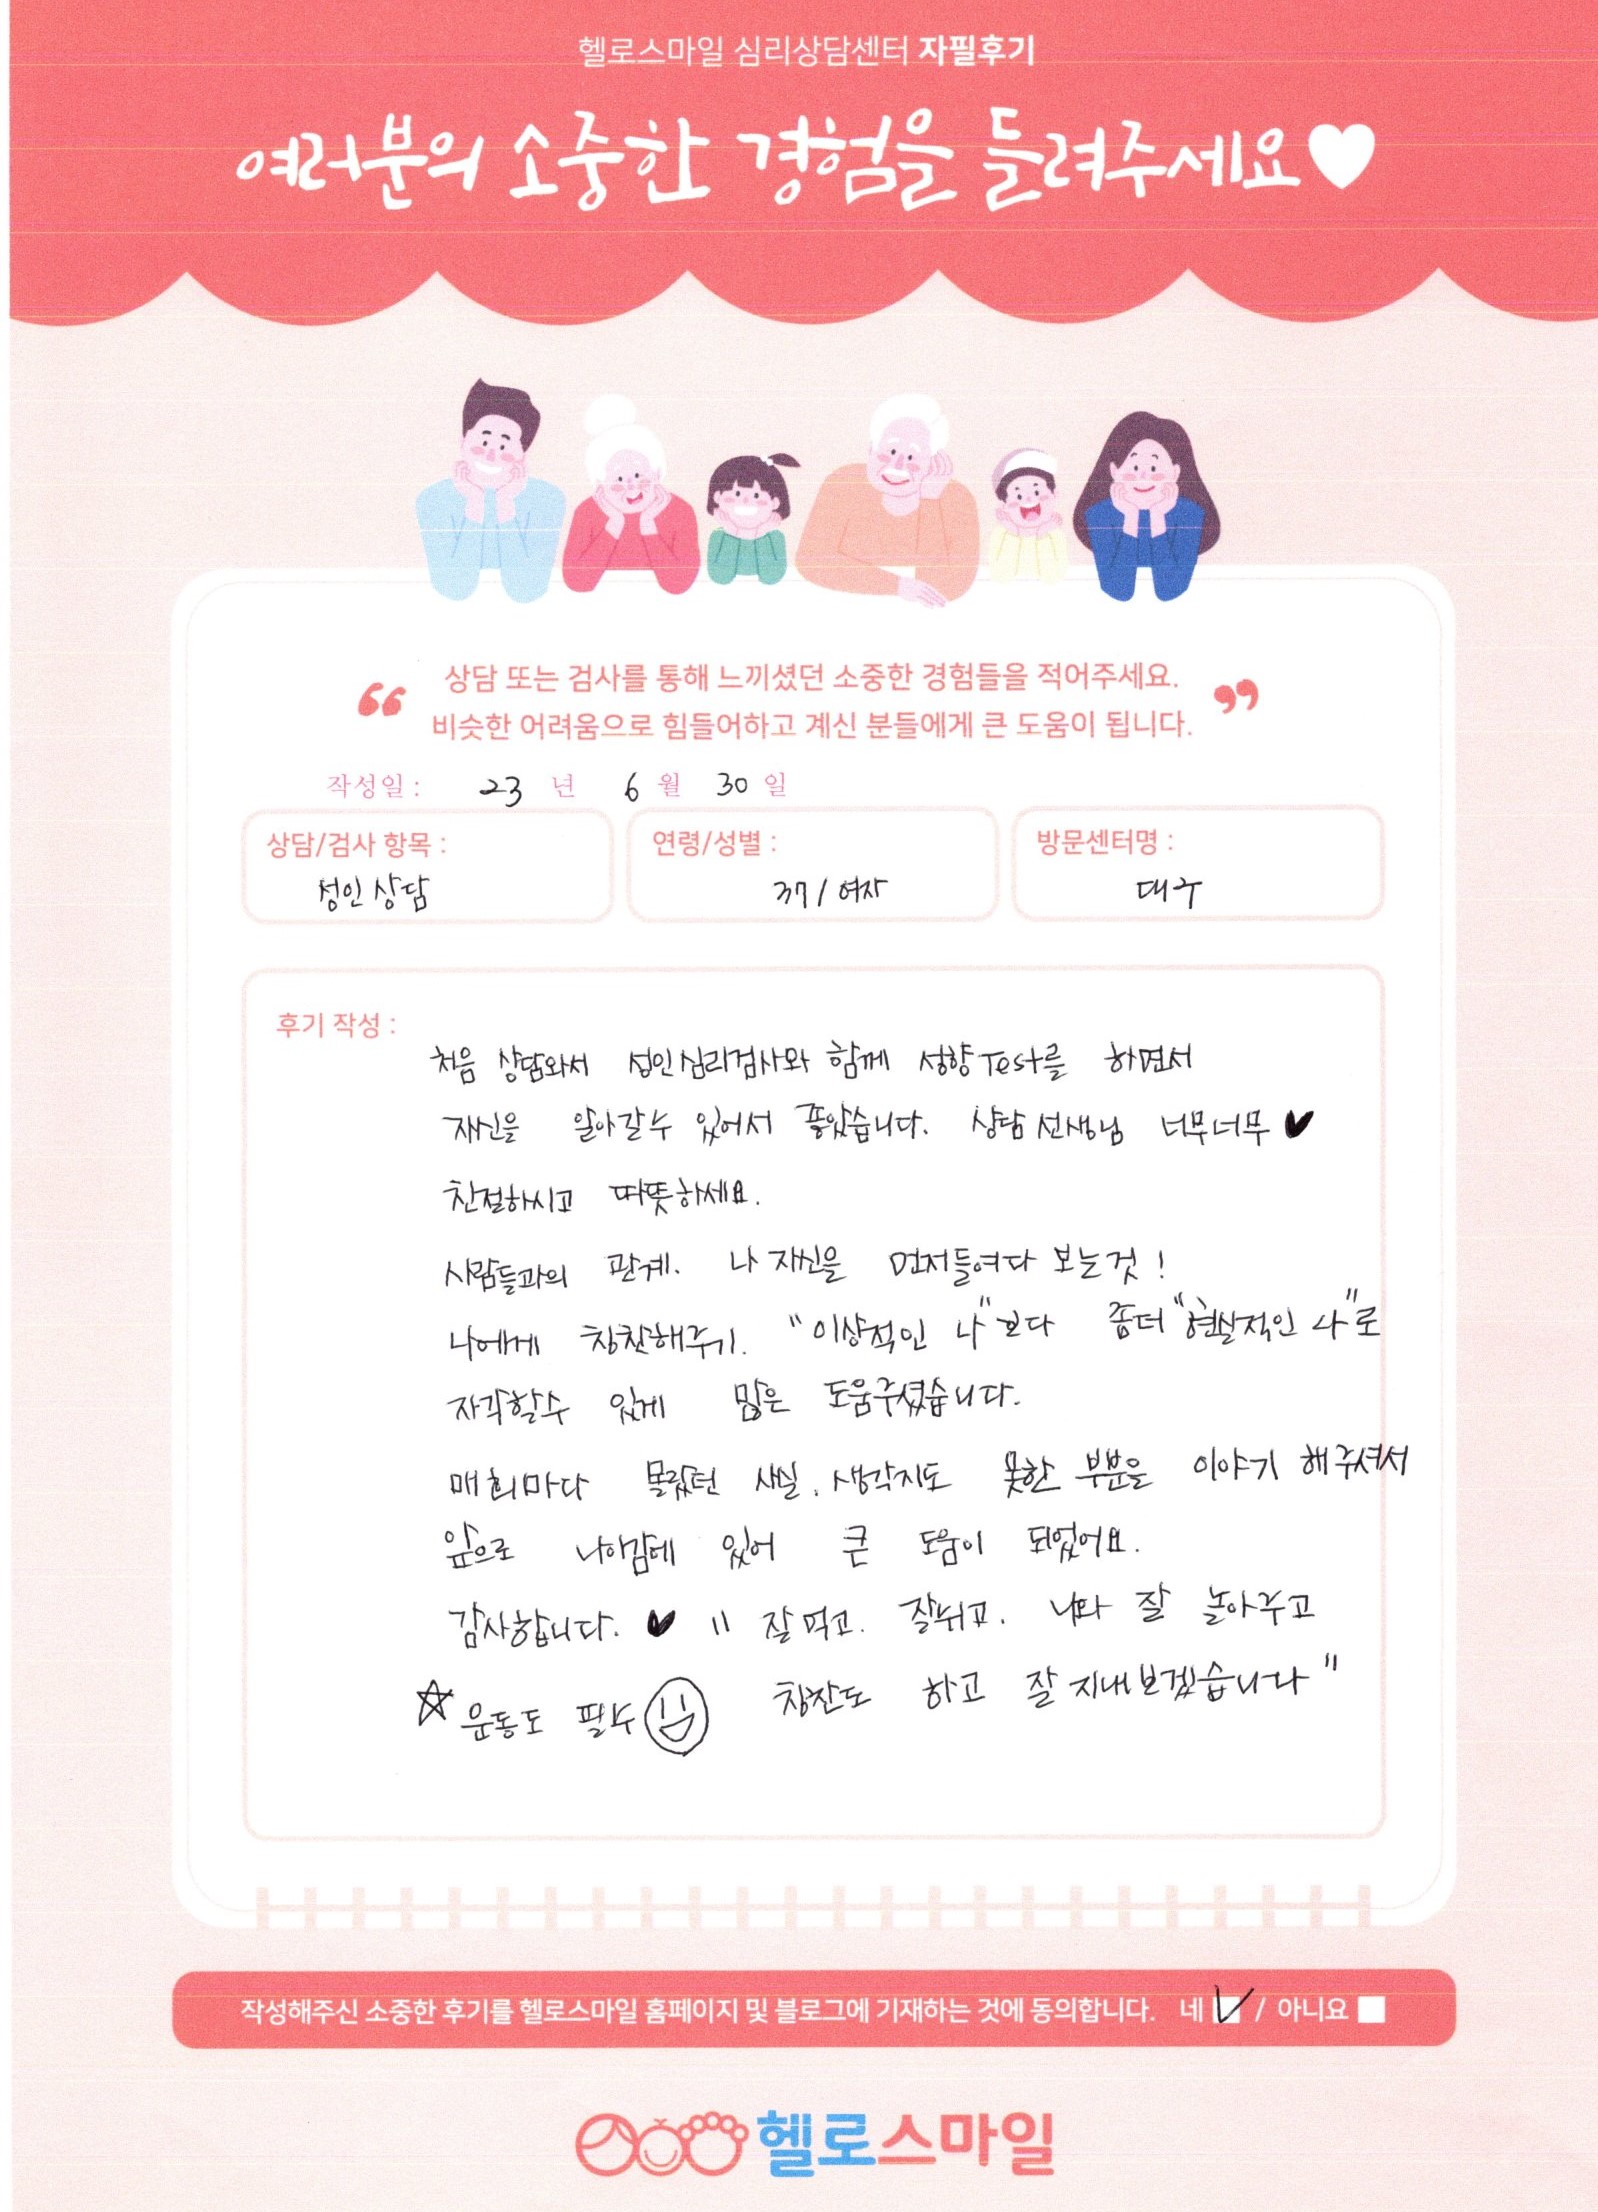 헬로스마일 심리상담센터 자필후기
여러분의 소중한 경험을 들려주세요♥
“ 상담 또는 검사를 통해 느끼셨던 소중한 경험들을 적어주세요. ”
비슷한 어려움으로 힘들어하고 계신 분들에게 큰 도움이 됩니다.
작성일 : 23 년 6 월 30 일
상담/검사 항목 : 연령/성별 : 방문센터명 :
성인상담 37 / 여자 대구
후기 작성 :
처음 상담와서 성인심리검사와 함께 성향Test를 하면서
자신을 알아갈수 있어서 좋았습니다. 상담선생님 너무너무 ♥
친절하시고 따뜻하세요.
사람들과의 관계. 나 자신을 먼저들여다 보는것!
나에게 칭찬해주기. "이상적인 나"보다 좀더 "현실적인 나"로
자각할수 있게 많은 도움주셨습니다.
매회마다 몰랐던 사실, 생각지도 못한 부분을 이야기 해주셔서
앞으로 나아감에 있어 큰 도움이 되었어요.
감사합니다. ♥ "잘먹고. 잘쉬고. 나와 잘 놀아주고
☆운동도 필수 칭찬도 하고 잘지내보겠습니다"
작성해주신 소중한 후기를 헬로스마일 홈페이지 및 블로그에 기재하는 것에 동의합니다. 네 V / 아니요
헬로스마일